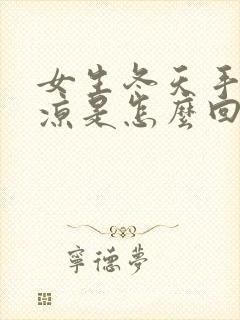 女生冬天手
凉是怎麼回
寧德夢